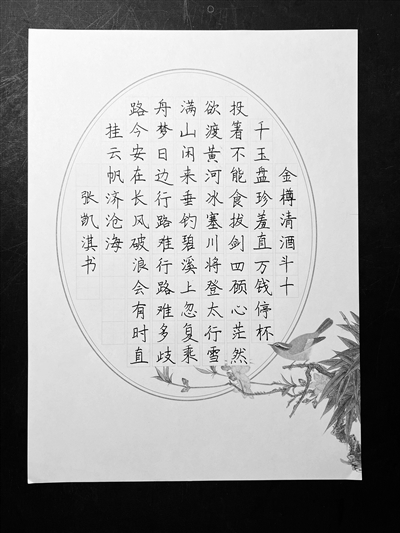 金樽清酒斗十
千玉盘珍羞直万钱停杯
投箸不能食拔剑四顾心茫然
欲渡黄河冰塞川将登太行雪
满山闲来垂钓碧溪上忽复乘
舟梦日边行路难行路难多歧
路今安在长风破浪会有时直
挂云帆济沧海
张凯淇书